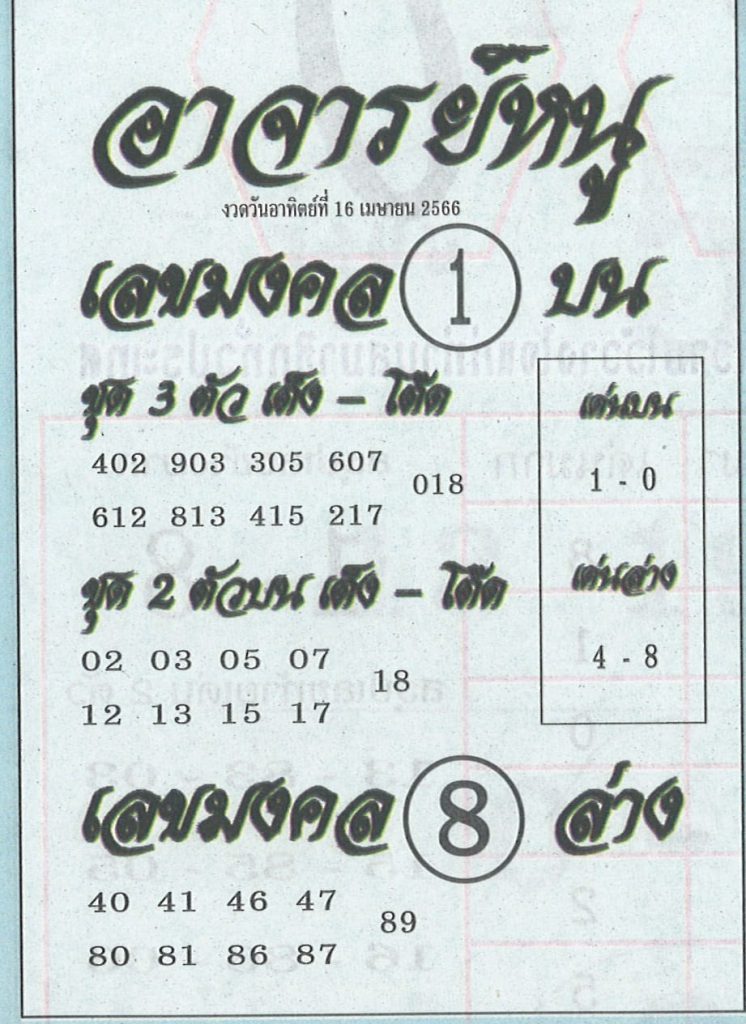 อาจารย์หนู
งวดวันอาทิตย์ที่ 16 เมษายน 2566
เลขมงคล 1 บน
ชุด 3 ตัว เต็ง – โต๊ด
402 903 305 607
018
612 813 415 217
เด่นบน
1 - 0
ชุด 2 ตัวบน เต็ง – โต๊ด
02 03 05 07
18
12 13 15 17
เด่นล่าง
4 - 8
เลขมงคล 8 ล่าง
40 41 46 47
89
80 81 86 87